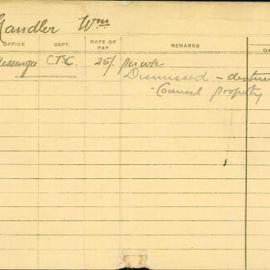 Chandler Wm
OFFICE DEPT. RATE OF PAY REMARKS DA
Messenger C.T.C. 25/. per wk
Dismissed - destru
Council property